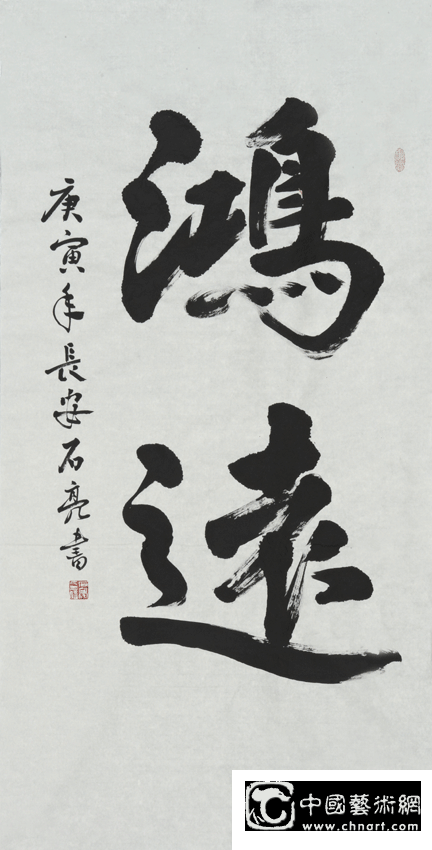 鴻遠
庚寅年長安石亮書
中國藝術網
www.chnart.com